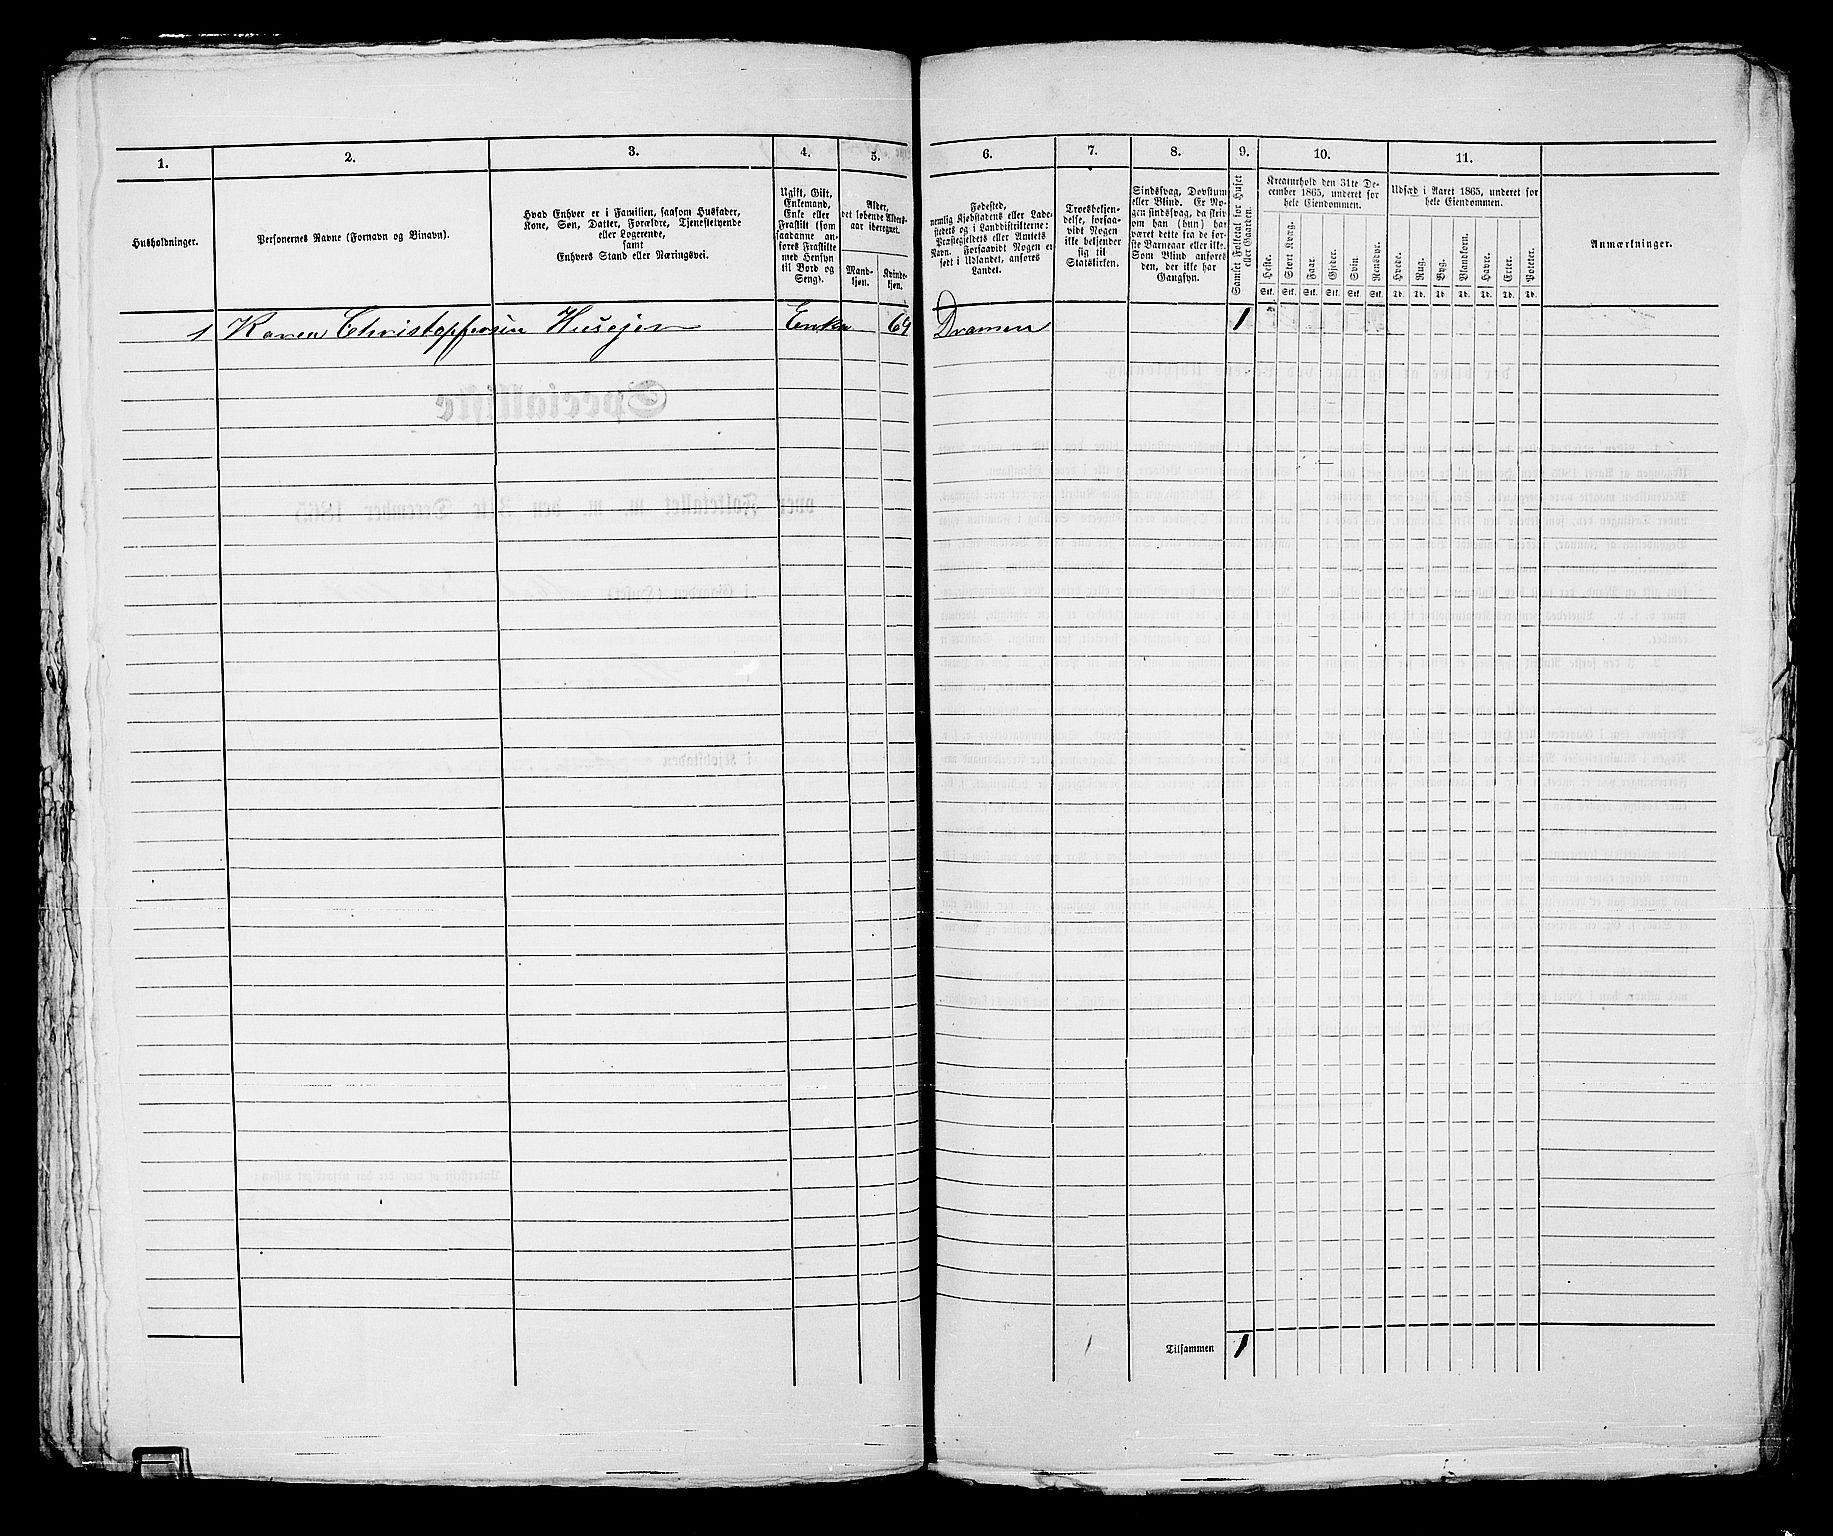 1. 2. 3. 4. 5. 6. 7. 8. 9. 10. 11.
Husholdninger.
Personernes Navne (Fornavn og Binavn).
Hvad Enhver er i Familien, saasom Husfader,
Kone, Søn, Datter, Forældre, Tjenestetyende
eller Logerende,
samt
Enhvers Stand eller Næringsvei.
Ugift, Gift,
Enkemand,
Enke eller
Fraskilt (som
saadanne an-
føres Fraskilte
med Hensyn
til Bord og
Seng).
Alder,
det løbende Alders-
aar iberegnet.
Mand-
kjøn.
Kvinde-
kjøn.
Fødested,
nemlig Kjøbstadens eller Lade-
stedets og i Landdistrikterne:
Præstegjeldets eller Amtets
Navn. Forsaavidt Nogen er
født i Udlandet, anføres
Landet.
Troesbekjen-
delse, forsaa-
vidt Nogen
ikke bekjender
sig til
Statskirken.
Sindssvag, Døvstum
eller Blind. Er No-
gen sindssvag, da skriv
om han (hun) har
været dette fra de før-
ste Barneaar eller ikke.
Som Blind anføres
den, der ikke har
Gangsyn.
Samlet Folketal for Huset
eller Gaarden.
Kreaturhold den 31te De-
cember 1865, underet for
hele Eiendommen.
Heste. Stort Kvæg. Faar. Gjeder. Svin. Rensdyr.
Stk. Stk. Stk. Stk. Stk. Stk.
Udsæd i Aaret 1865, underet for
hele Eiendommen.
Hvede. Rug. Byg. Blandkorn. Havre. Erter. Poteter.
Td. Td. Td. Td. Td. Td. Td.
Anmærkninger.
1 Karen Christophersen Husejer Enke 69 Dramen 1
Tilsammen 1